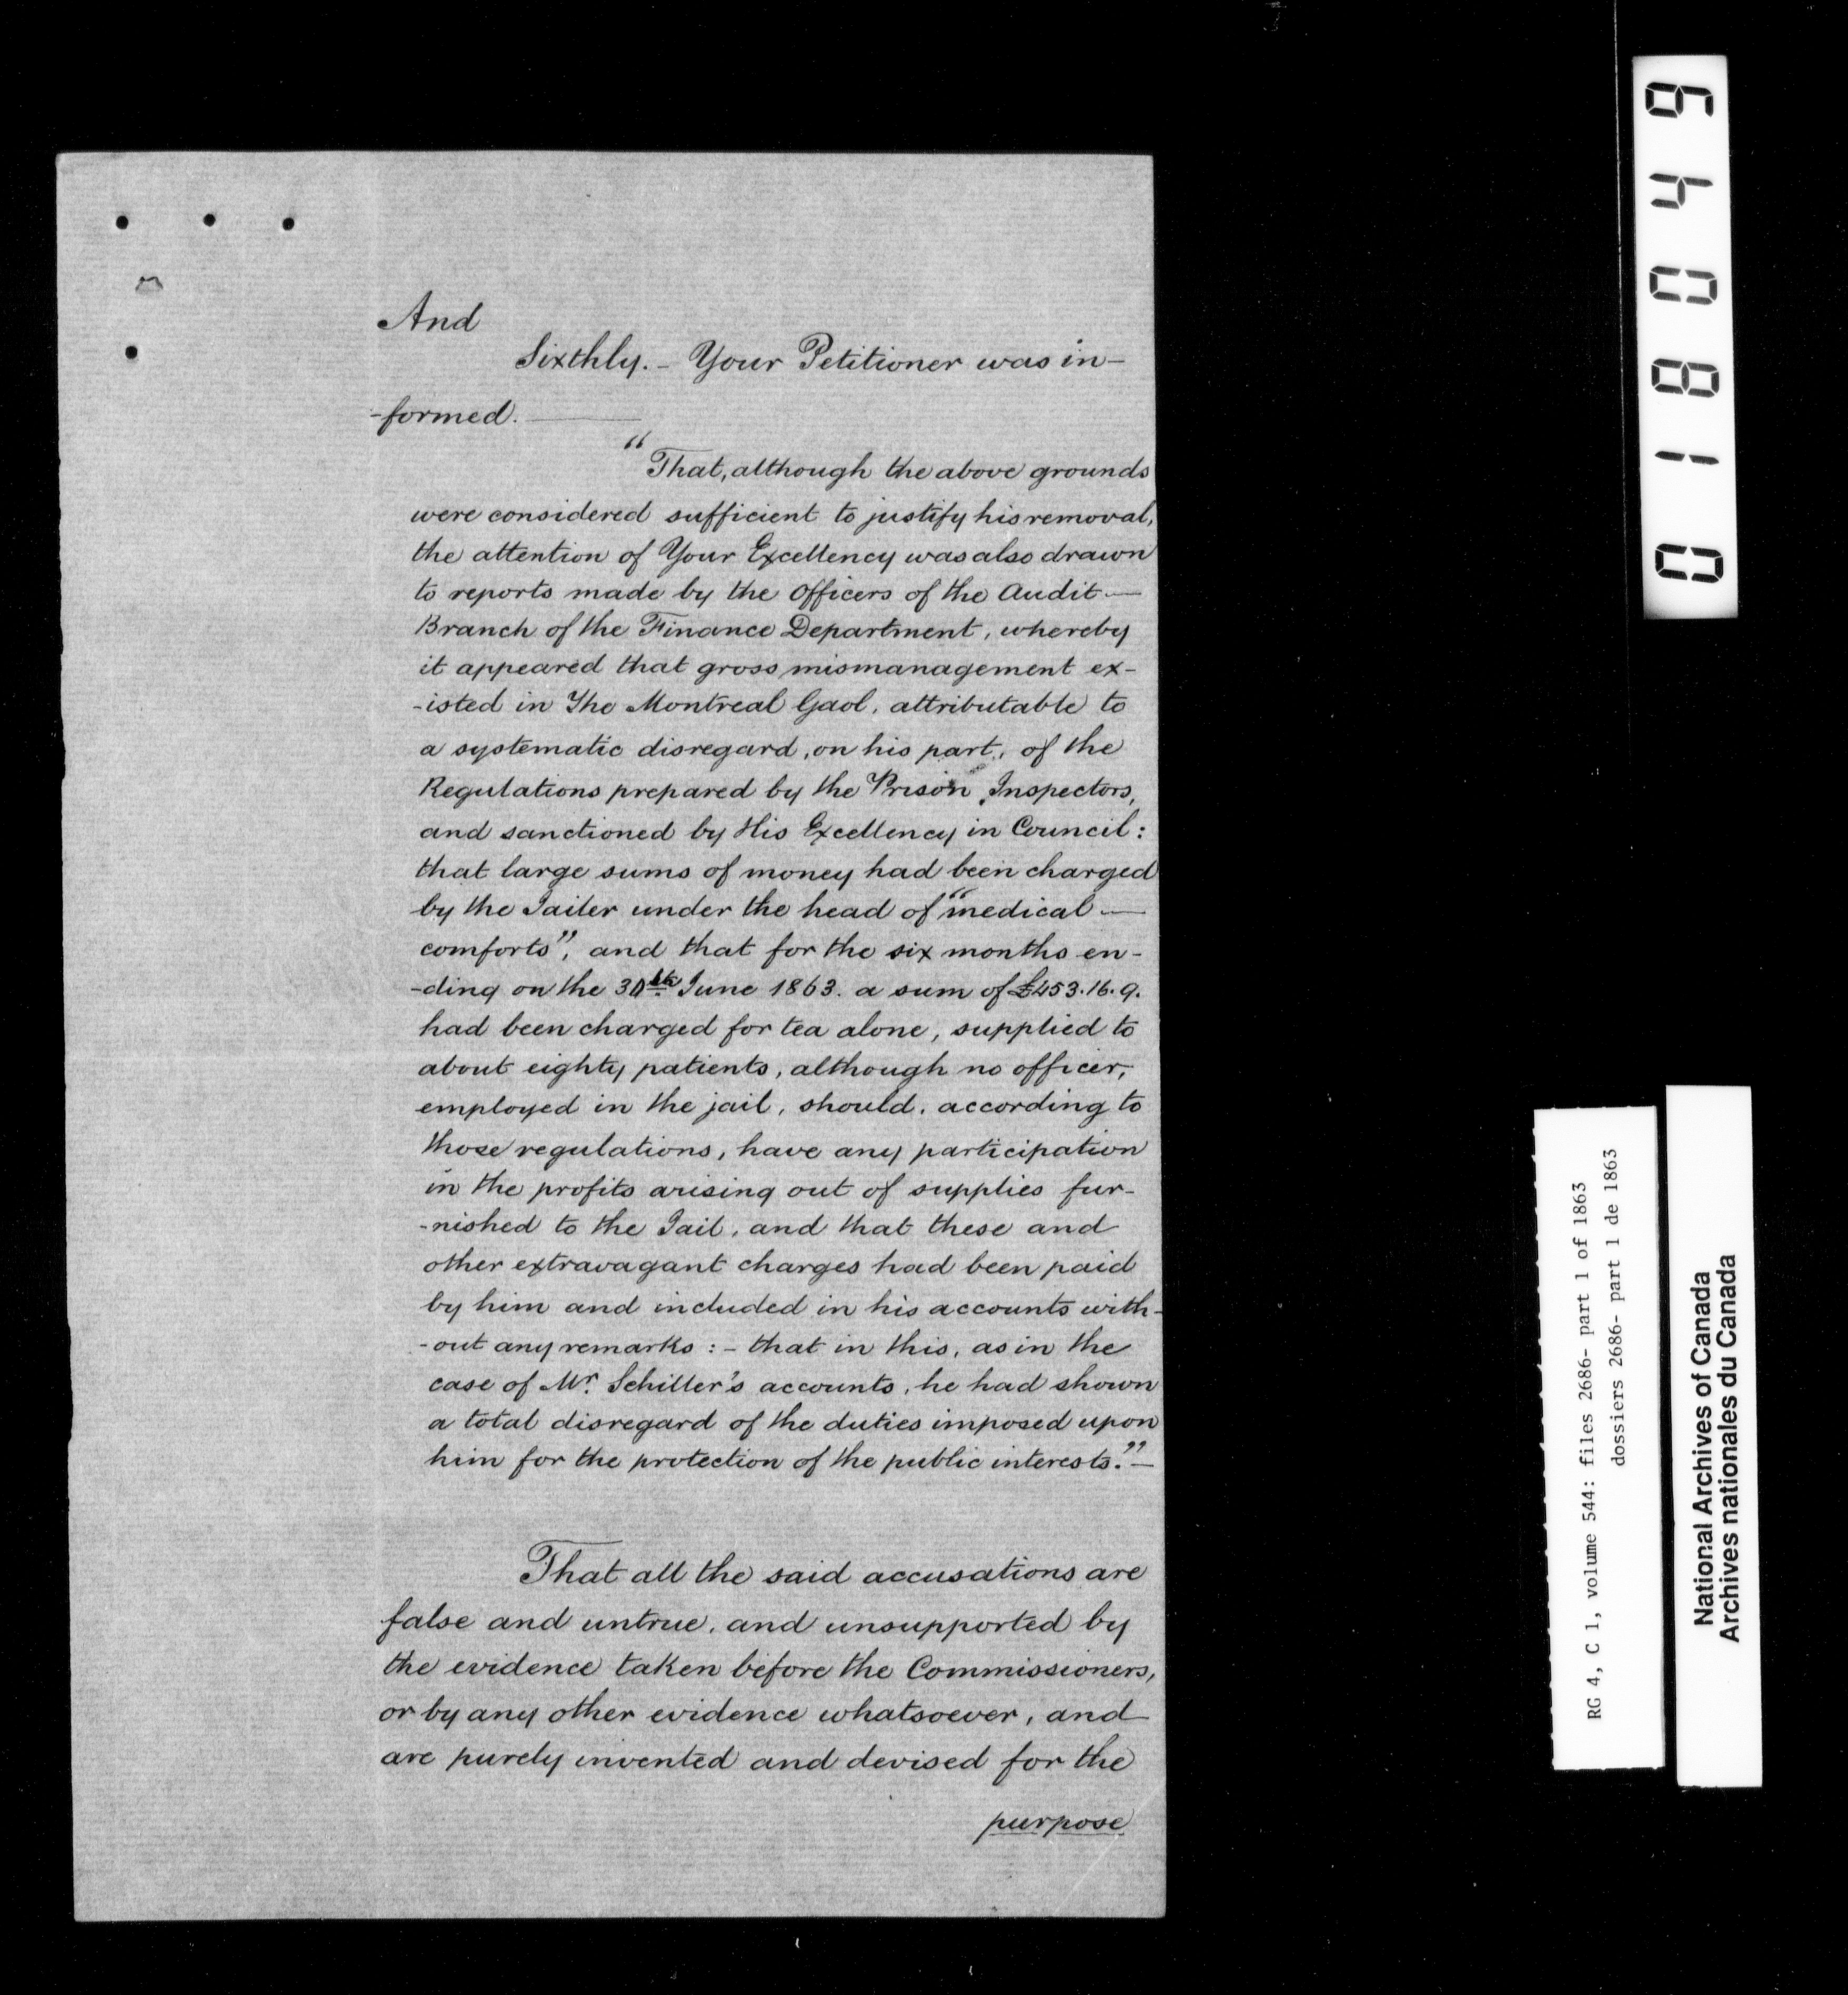 And
Sixthly. - Your Petitioner was in-
-formed.
"That, although the above grounds
were considered sufficient to justify his removal,
the attention of Your Excellency was also drawn
to reports made by the Officers of the Audit —
Branch of the Finance Department, whereby
it appeared that gross mismanagement ex-
-isted in The Montreal Gaol, attributable to
a systematic disregard, on his part, of the
Regulations prepared by the Prison Inspectors,
and sanctioned by His Excellency in Council:
that large sums of money had been charged
by the Jailer under the head of "medical —
comforts", and that for the six months en-
-ding on the 30th June 1863. a sum of £453.16.9.
had been charged for tea alone, supplied to
about eighty patients, although no officer,
employed in the jail, should, according to
those regulations, have any participation
in the profits arising out of supplies fur-
-nished to the Jail, and that these and
other extravagant charges had been paid
by him and included in his accounts with-
-out any remarks : - that in this, as in the
case of Mr. Schiller's accounts, he had shown
a total disregard of the duties imposed upon
him for the protection of the public interests." —
That all the said accusations are
false and untrue, and unsupported by
the evidence taken before the Commissioners,
or by any other evidence whatsoever, and
are purely invented and devised for the
purpose
018049
RG 4, C 1, volume 544: files 2686- part 1 of 1863
dossiers 2686- part 1 de 1863
National Archives of Canada
Archives nationales du Canada